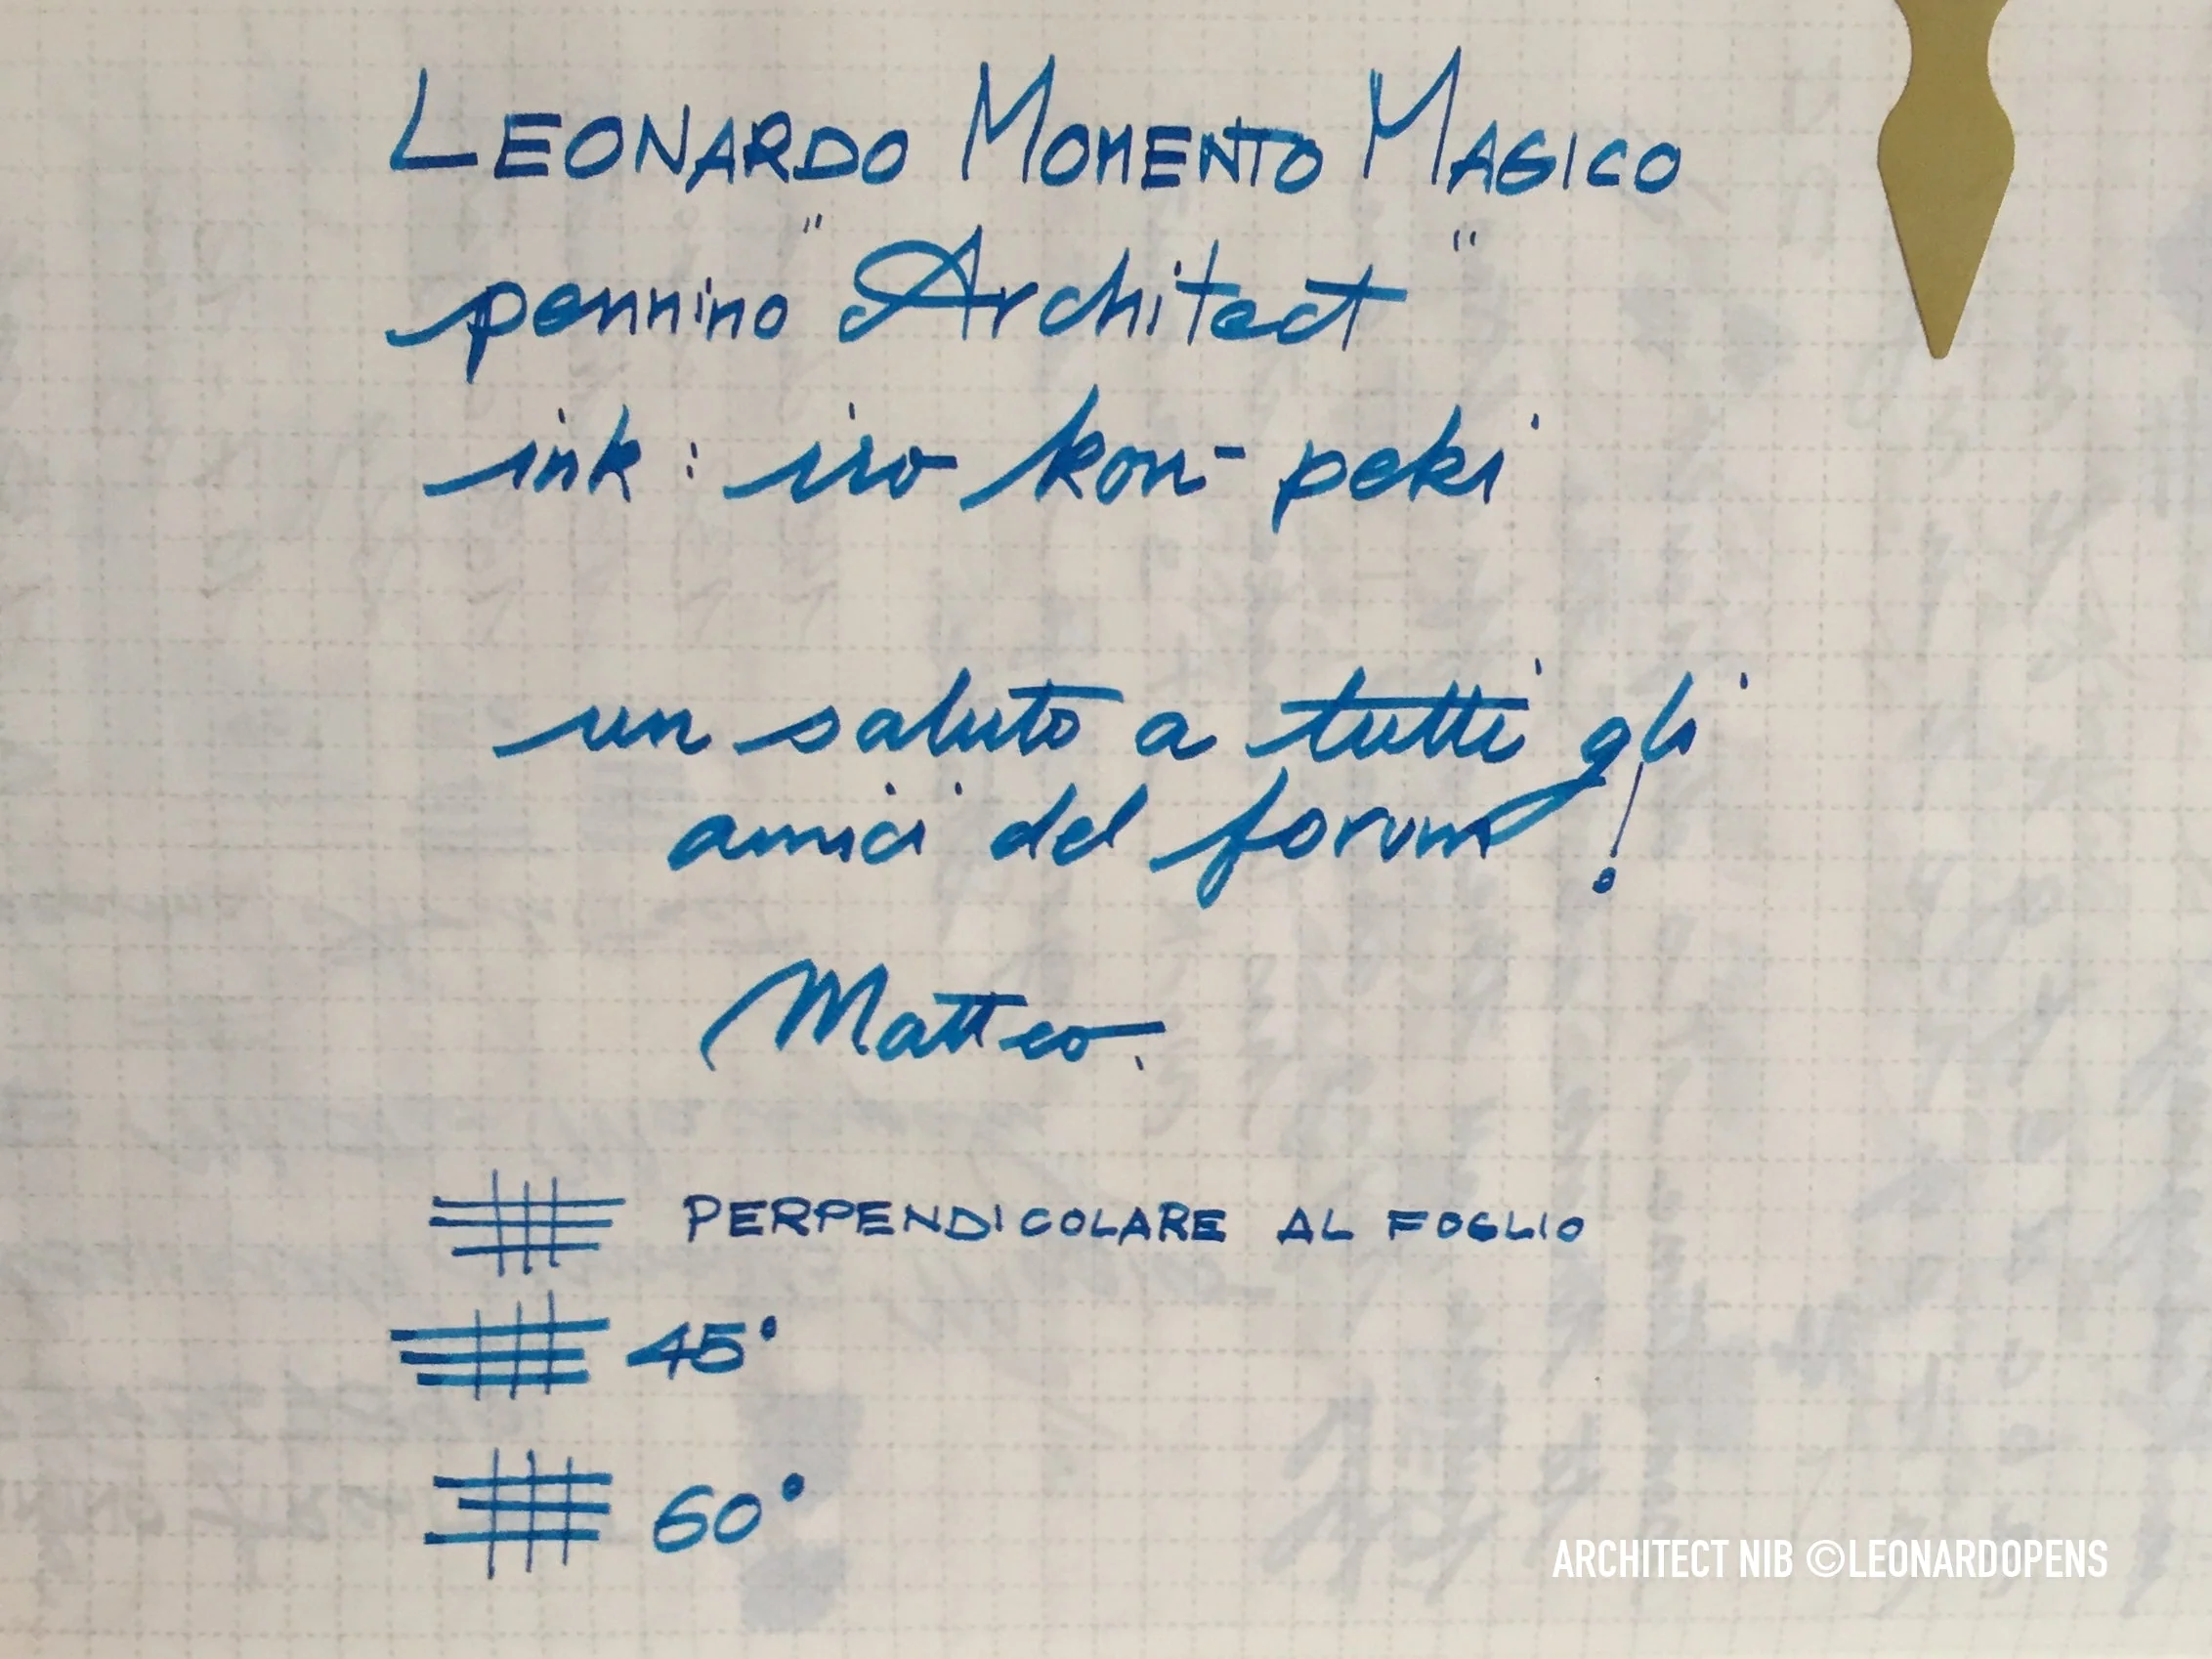 LEONARDO MOMENTO MAGICO
pennino "Architect"
ink: iro kon-peki
un saluto a tutti gli
amici del forum!
Matteo.
PERPENDICOLARE AL FOGLIO
45°
60°
ARCHITECT NIB ©LEONARDOPENS